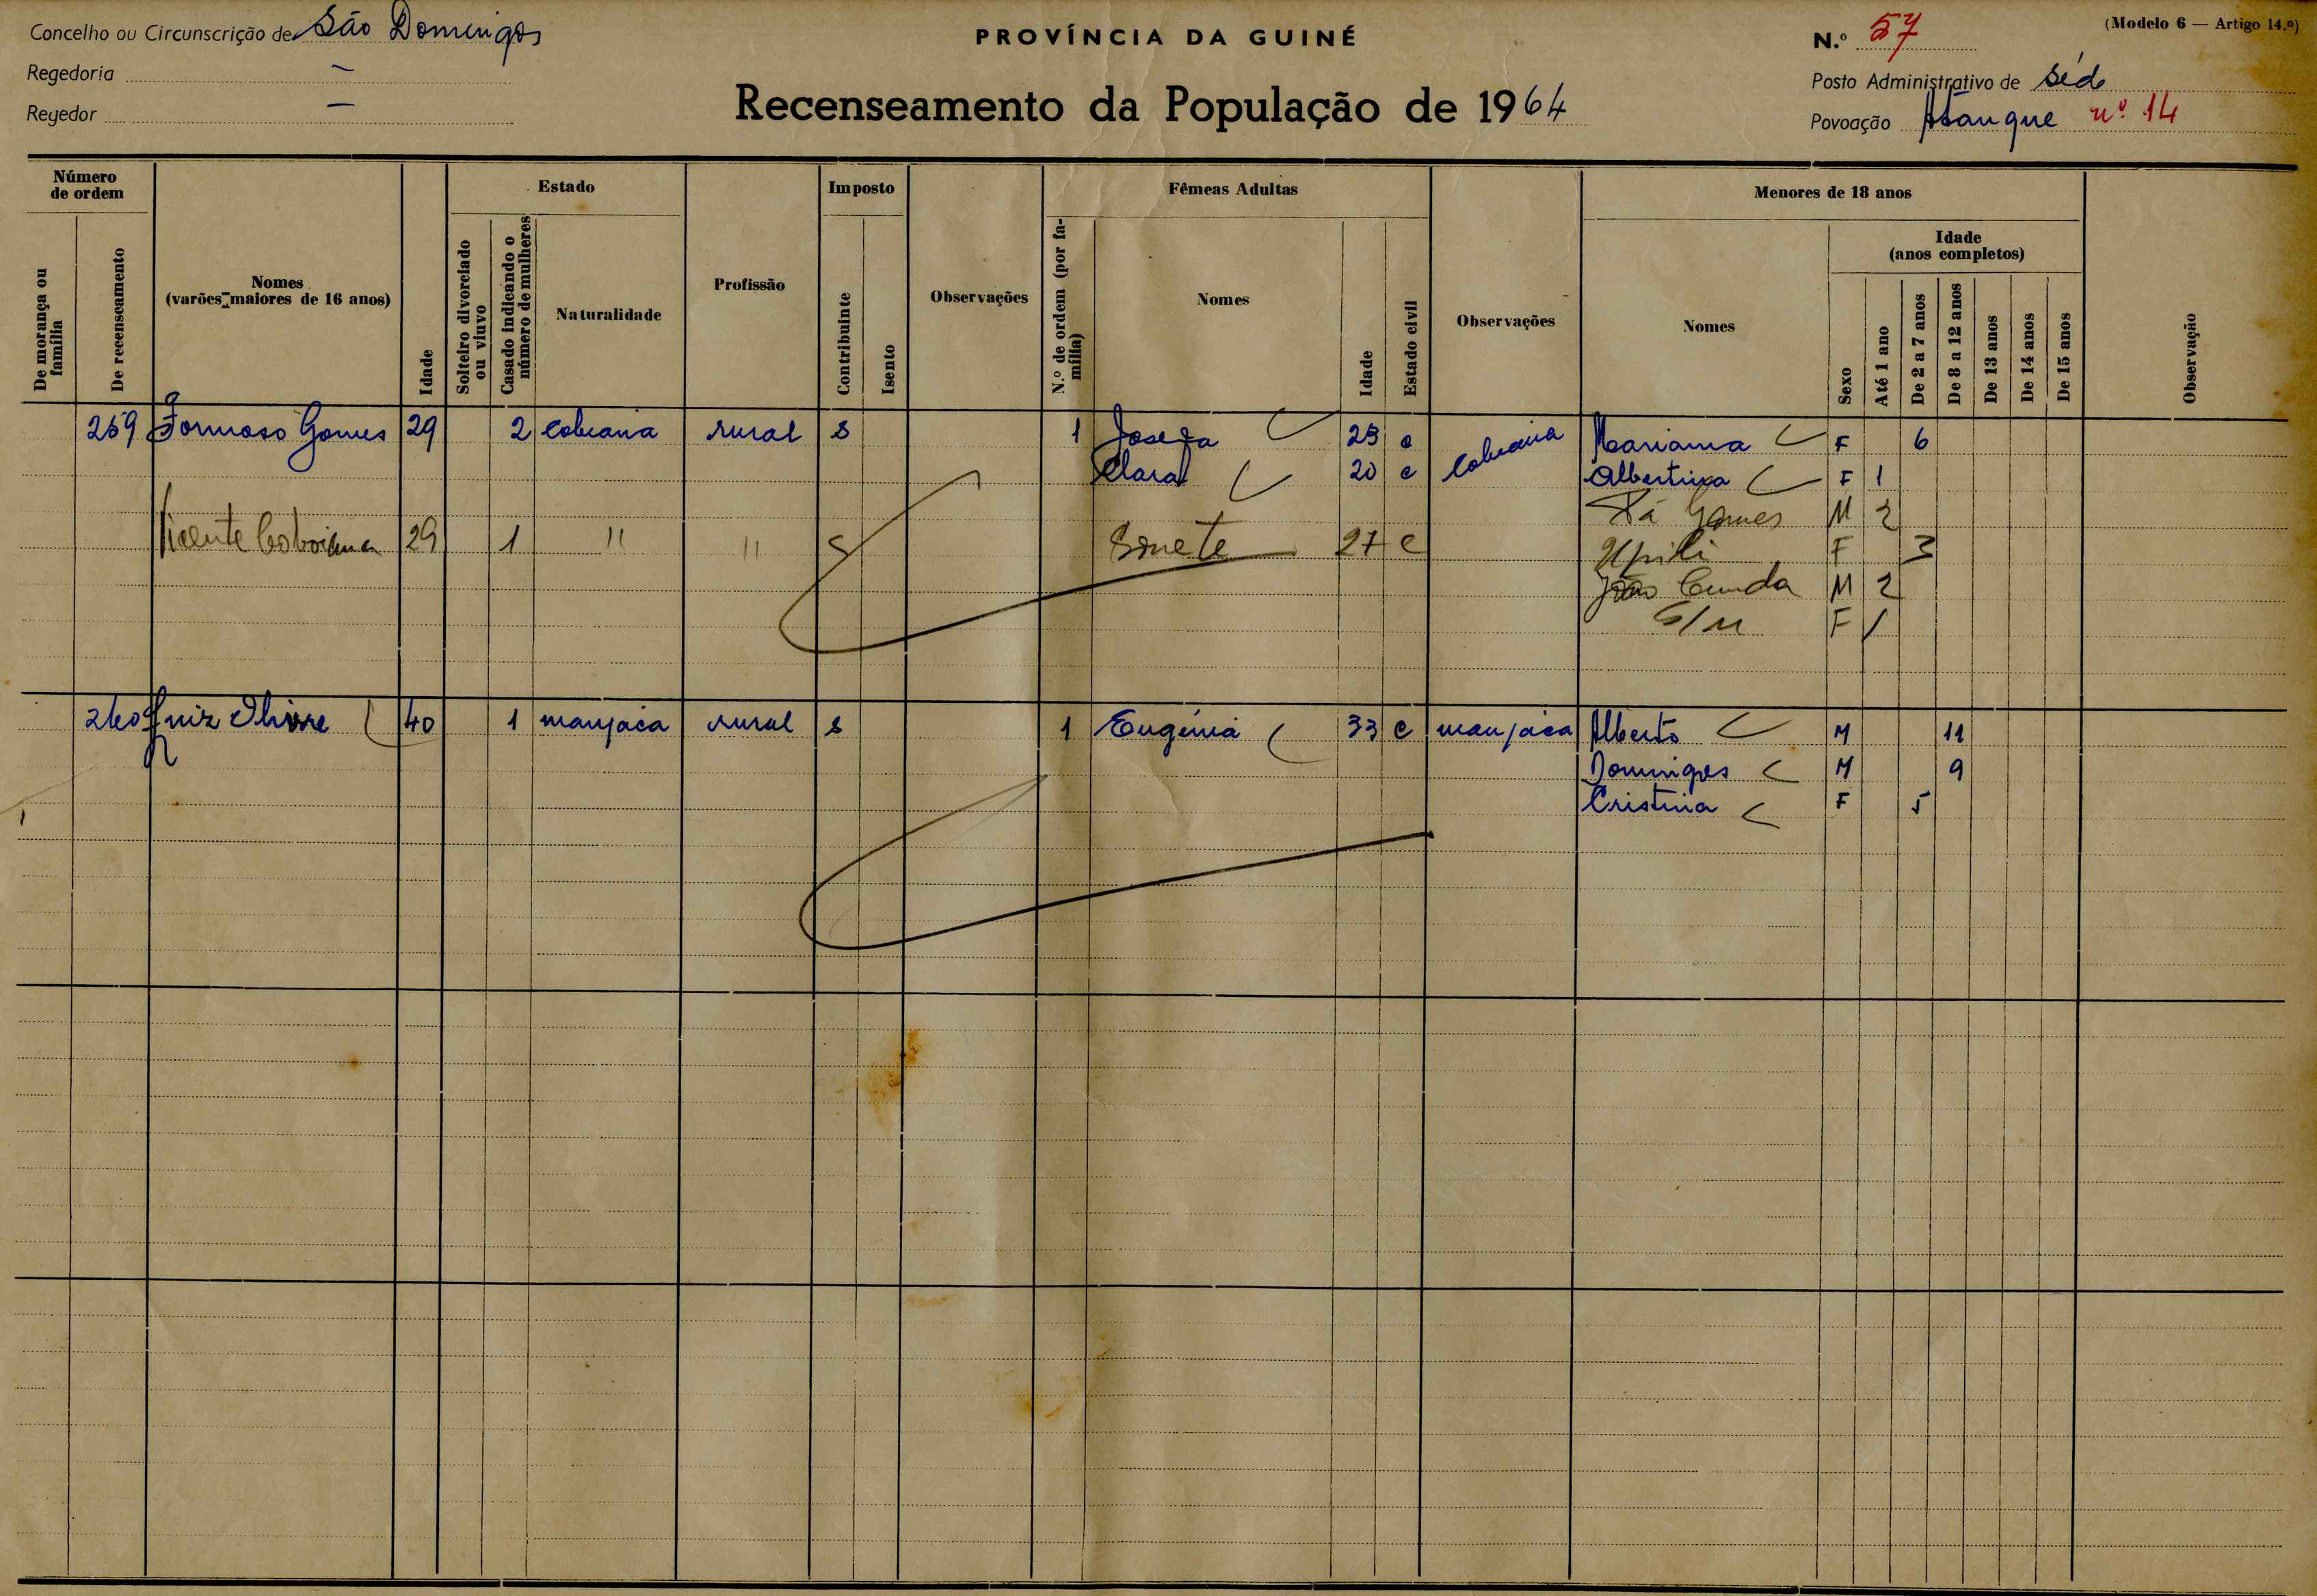 Concelho ou Circunscrição de São Domingos
Regedoria —
Regedor —
PROVÍNCIA DA GUINÉ
Recenseamento da População de 1964
(Modelo 6 — Artigo 14.º)
N.º 57
Posto Administrativo de Séde
Povoação nº 14
Número de ordem
De morança ou família
De recenseamento
Nomes (varões maiores de 16 anos)
Idade
Estado
Solteiro divorciado ou viuvo
Casado indicando o número de mulheres
Naturalidade
Profissão
Imposto
Contribuinte
Isento
Observações
Fêmeas Adultas
N.º de ordem (por família)
Nomes
Idade
Estado civil
Observações
Menores de 18 anos
Nomes
Idade (anos completos)
Sexo
Até 1 ano
De 2 a 7 anos
De 8 a 12 anos
De 13 anos
De 14 anos
De 15 anos
Observação
259 Formoso Gomes 29 2 cobiana rural s 1 Josefa 23 c cobiana Mariama F 6
Clara 20 c Albertina F 1
Gomes M 2
Vicente Coboiana 29 1 " " S 27 c F 3
João M 2
S/N F 1
260 Luiz 40 1 manjaca rural s 1 Eugénia 33 c manjaca Alberto M 11
Domingos M 9
Cristina F 5